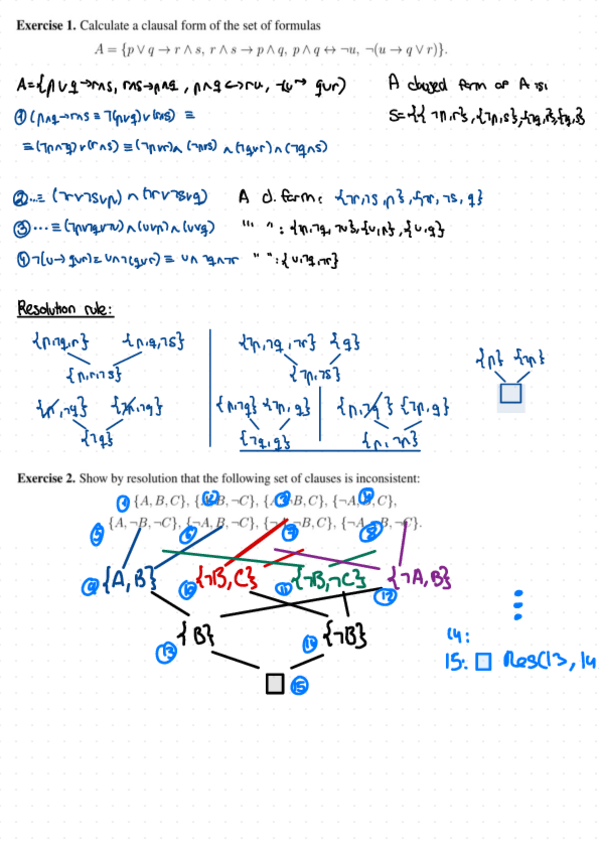 Exercise 1. Calculate a clausal form of the set of formulas
A = {p ∨ q → r ∧ s, r ∧ s → p ∧ q, p ∧ q ↔ ¬u, ¬(u → q ∨ r)}.
A={p∨q→r∧s, r∧s→p∧q, p∧q↔¬u,
A clausal form of A is:
①
≡(¬p∧¬q)∨(r∧s)≡(¬p∨r)∧
S={{¬p,r},{¬p,s},
②...≡(¬r∨¬s∨p)∧(¬r∨¬s∨q) A cl. form: {¬r,¬s,p},{¬r,¬s,q}
③...≡(¬p∨¬q∨¬u)∧(u∨p)∧(u∨q) "" ": {p,¬q,¬u},{u,p},{u,q}
④¬(u→q∨r)≡u∧¬(q∨r)≡ u∧ ¬q∧¬r " ":{u,¬q,¬r}
Resolution rule:
{p,¬q,r} {p,q,¬s} {¬p,¬q,¬r} {q}
{p,r,¬s} {¬p,¬s} {p} {¬p}
{p,¬q} {¬p,q} {p,¬q} {¬p,q}
{¬q} {¬q,q} {p,¬p}
Exercise 2. Show by resolution that the following set of clauses is inconsistent:
① {A, B, C}, {A, B, ¬C}, {A, ¬B, C}, {¬A, B, C},
⑤ {A, ¬B, ¬C}, {¬A, B, ¬C}, {¬A, ¬B, C}, {¬A, ¬B, ¬C}.
⑨ {A,B} ⑩ {¬B,C} ⑪ {¬B,¬C} ⑫ {¬A,B}
⑬ {B} ⑭ {¬B}
14:
15: □ Res(13, 14
□ ⑮